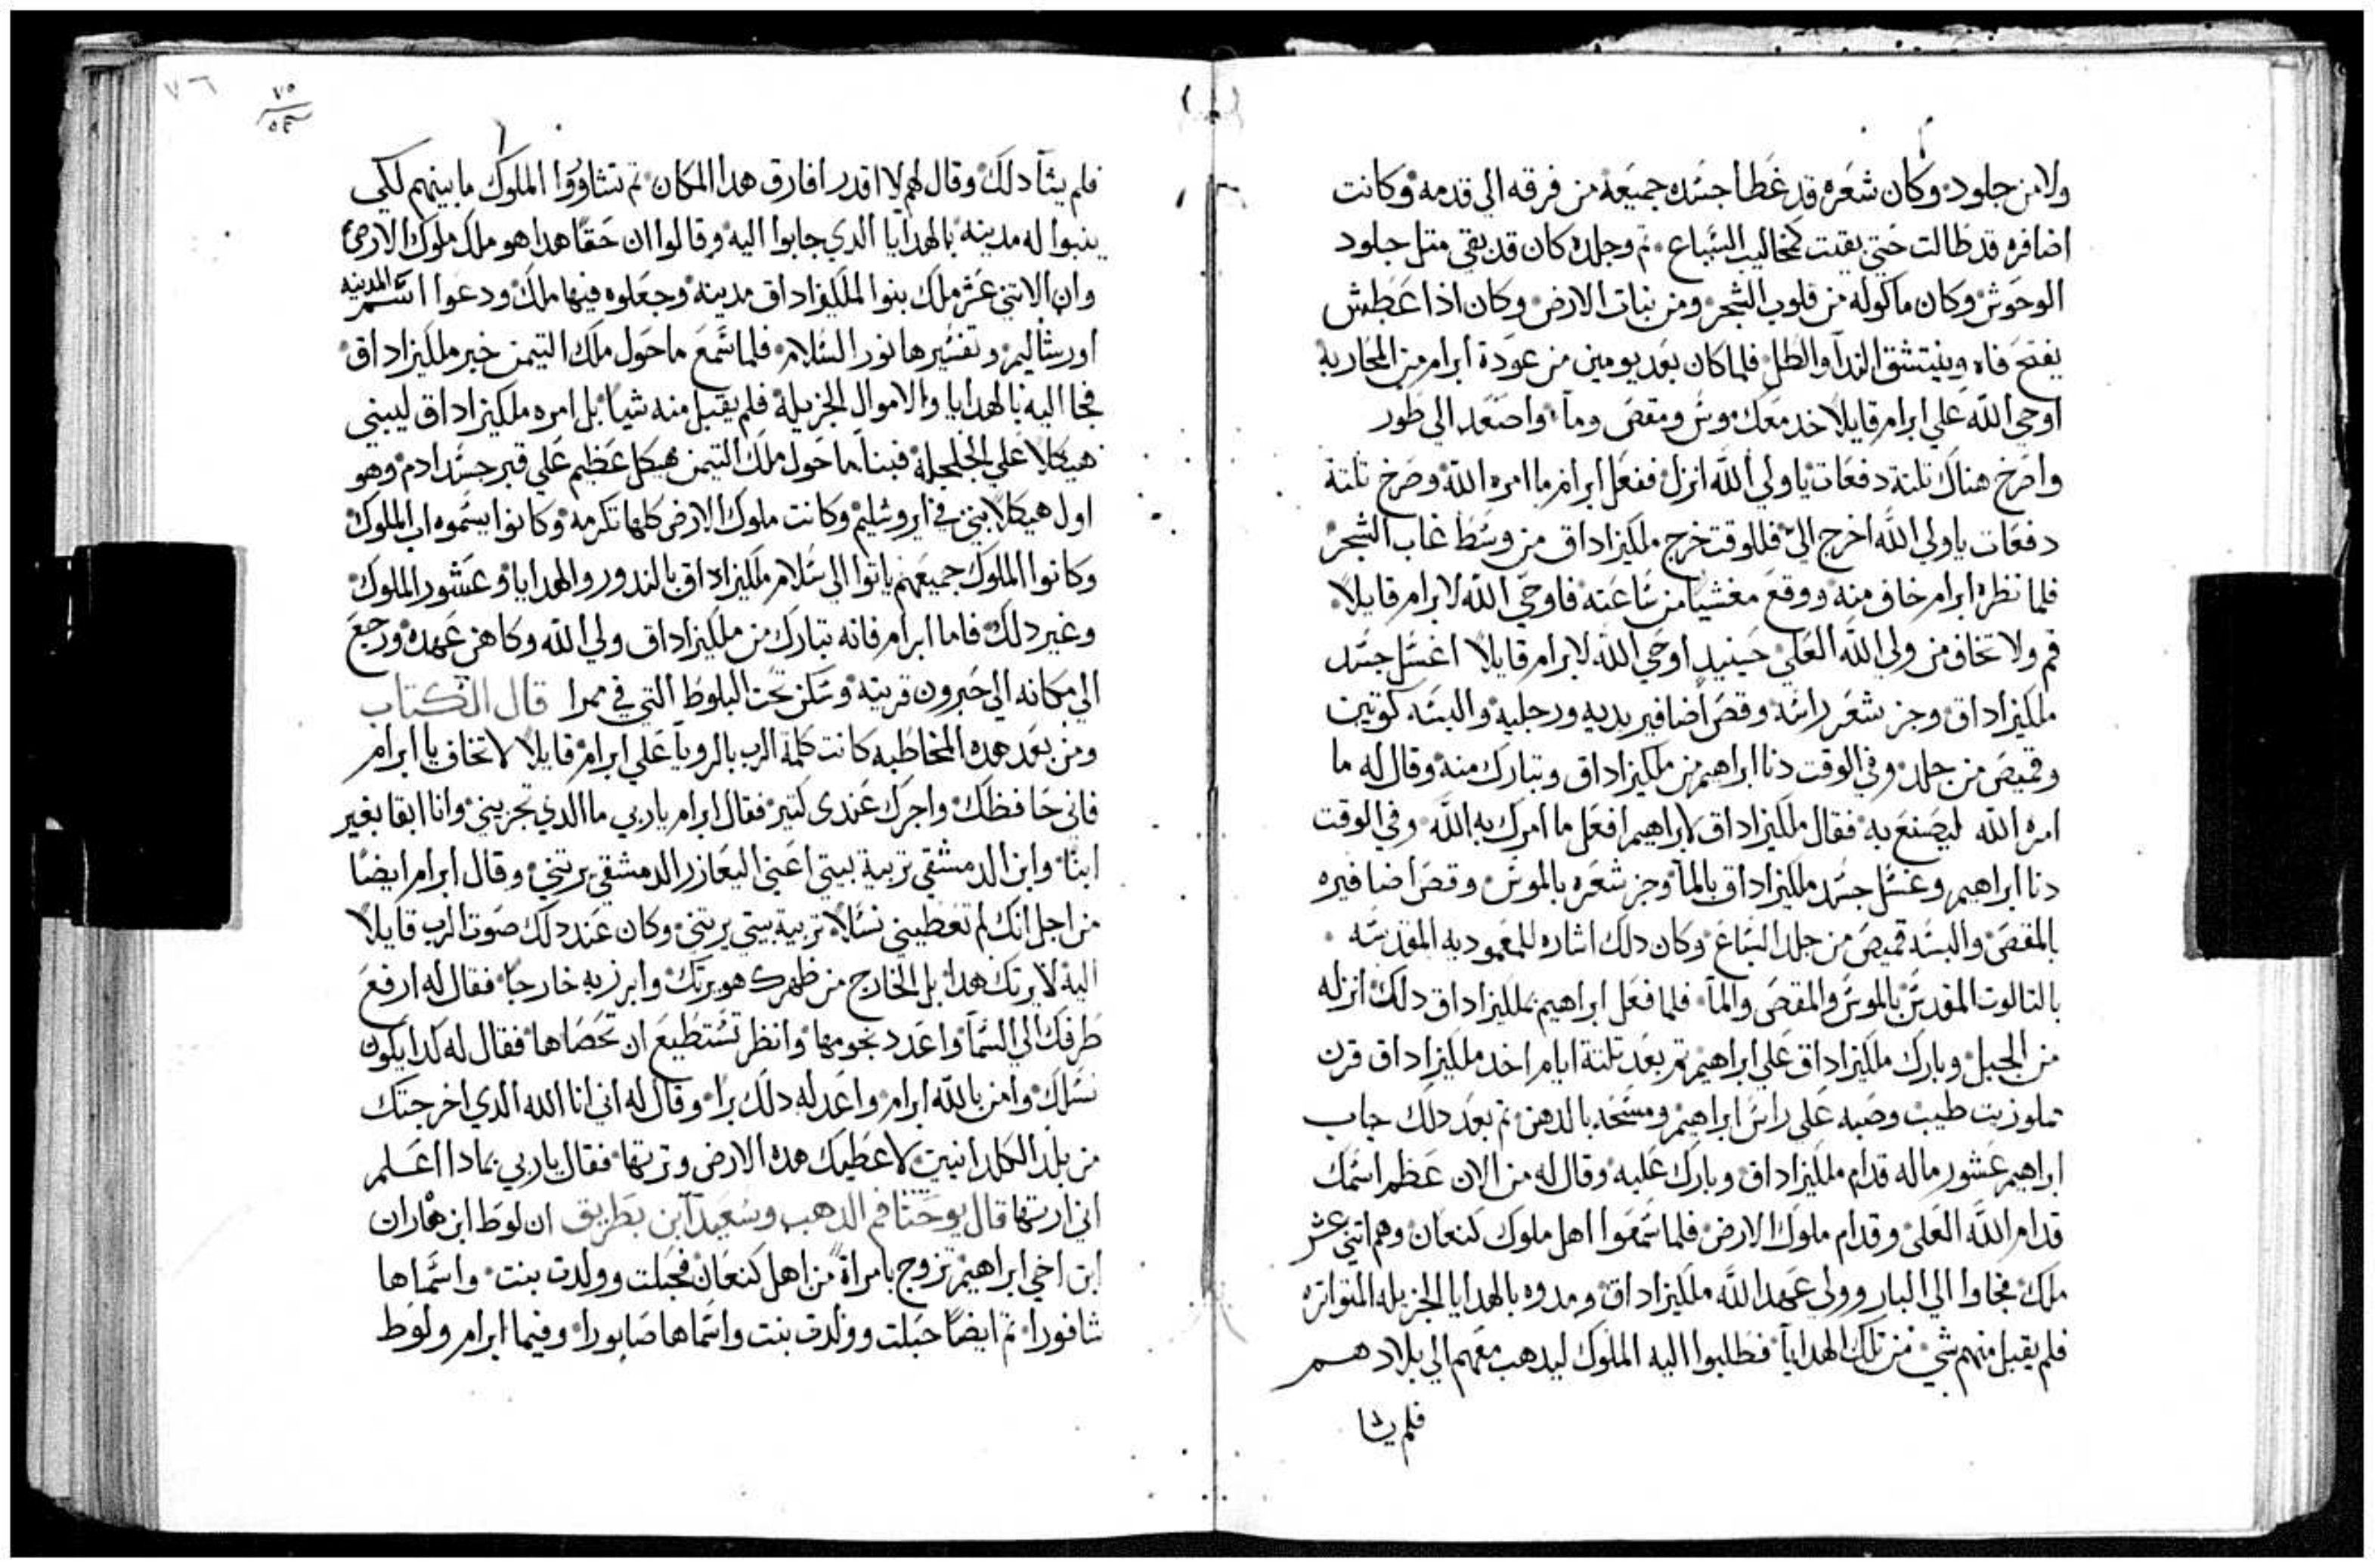 ولا من جلود وكان شعره قد غطا جسده جميعه من فرقه الي قدمه وكانت
اضافره قد طالت حتي بقيت كمخاليب السباع ثم وجلده كان قد بقي متل جلود
الوحوش وكان ماكوله من قلوب الشجر ومن نبات الارض وكان اذا عطش
يفتح فاه وينتشق الندا والطل فلما كان بعد يومين من عودة ابرام من المحاربه
اوحي الله علي ابرام قايلا خد معك موس ومقص وما واصعد الي طور
واصرخ هناك تلتة دفعات يا ولي الله انزل ففعل ابرام ما امره الله وصرخ تلتة
دفعات يا ولي الله اخرج الي فللوقت خرج ملكيزاداق من وسط غاب الشجر
فلما نظره ابرام خاف منه ووقع مغشيا من ساعته فاوحي الله لابرام قايلا
قم ولا تخاف من ولي الله العلي حينيد اوحي الله لابرام قايلا اغسل جسد
ملكيزاداق وجز شعر راسه وقص اضافير يديه ورجليه والبسه كوتين
وقميص من جلد وفي الوقت دنا ابراهيم من ملكيزاداق وتبارك منه وقال له ما
امره الله ليصنع به فقال ملكيزاداق لابراهيم افعل ما امرك به الله وفي الوقت
دنا ابراهيم وغسل جسد ملكيزاداق بالما وجز شعره بالموس وقص اضافيره
بالمقص والبسه قميص من جلد السباع وكان دلك اشاره للمعموديه المقدسه
بالتالوت المقدس بالموس والمقص والما فلما فعل ابراهيم بملكيزاداق دلك انزله
من الجبل وبارك ملكيزاداق علي ابراهيم تم بعد تلتة ايام اخد ملكيزاداق قرن
مملو زيت طيب وصبه علي راس ابراهيم ومسحه بالدهن تم بعد دلك جاب
ابراهيم عشور ماله قدام ملكيزاداق وبارك عليه وقال له من الان عظم اسمك
قدام الله العلي وقدام ملوك الارض فلما سمعوا اهل ملوك كنعان وهم اتني عشر
ملك فجاوا الي البار وولي عهد الله ملكيزاداق ومدوه بالهدايا الجزيله المتواتره
فلم يقبل منهم شي من تلك الهدايا فطلبوا اليه الملوك ليدهب معهم الي بلادهم
فلم يشا
٧٦
فلم يشا دلك وقال لهم لا اقدر افارق هدا المكان تم تشاوروا الملوك ما بينهم لكي
ينبوا له مدينه بالهدايا الدي جابوا اليه وقالوا ان حقا هدا هو ملك ملوك الارض
وان الاتني عشر ملك بنوا لملكيزاداق مدينه وجعلوه فيها ملك ودعوا اسم المدينه
اورشاليم وتفسيرها نور السلام فلما سمع ماحول ملك التيمن خبر ملكيزاداق
فجا اليه بالهدايا والاموال الجزيلة فلم يقبل منه شيا بل امره ملكيزاداق ليبني
هيكلا علي الجلجلة فبنا ماحول ملك التيمن هيكل عظيم علي قبر جسد ادم وهو
اول هيكلا بني في ايروشليم وكانت ملوك الارض كلها تكرمه وكانوا يسموه اب الملوك
وكانوا الملوك جميعهم ياتوا الي سلام ملكيزاداق بالندور والهدايا وعشور الملوك
وغير دلك فاما ابرام فانه تبارك من ملكيزاداق ولي الله وكاهن عهده ورجع
الي مكانه الي حبرون قريته وسكن تحت البلوط التي في ممرا قال الكتاب
ومن بعد هده المخاطبه كانت كلمة الرب بالرويا علي ابرام قايلا لا تخاف يا ابرام
فاني حافظك واجرك عندي كتير فقال ابرام يا ربي ما الدي تجزيني وانا ابقا بغير
ابنا وابن الدمشقي تربية بيتي اعني اليعازر الدمشقي يرتني وقال ابرام ايضا
من اجل انك لم تعطيني نسلا تربية بيتي يرتني وكان عند دلك صوت الرب قايلا
اليه لا يرتك هدا بل الخارج من ظهرك هو يرتك وابرز به خارجا فقال له ارفع
طرفك الي السما واعدد نجومها وانظر تستطيع ان تحصاها فقال له كدا يكون
نسلك وامن بالله ابرام واعد له دلك برا وقال له اني انا الله الدي اخرجتك
من بلد الكلدانيين لاعطيك هده الارض وترتها فقال يا ربي بمادا اعلم
اني ارتها قال يوحنا فم الدهب وسعيد ابن بطريق ان لوط ابن هاران
ابن اخي ابراهيم تزوج بامراة من اهل كنعان فحبلت وولدت بنت واسماها
شافورا تم ايضا حبلت وولدت بنت واسماها صابورا وفيما ابرام ولوط